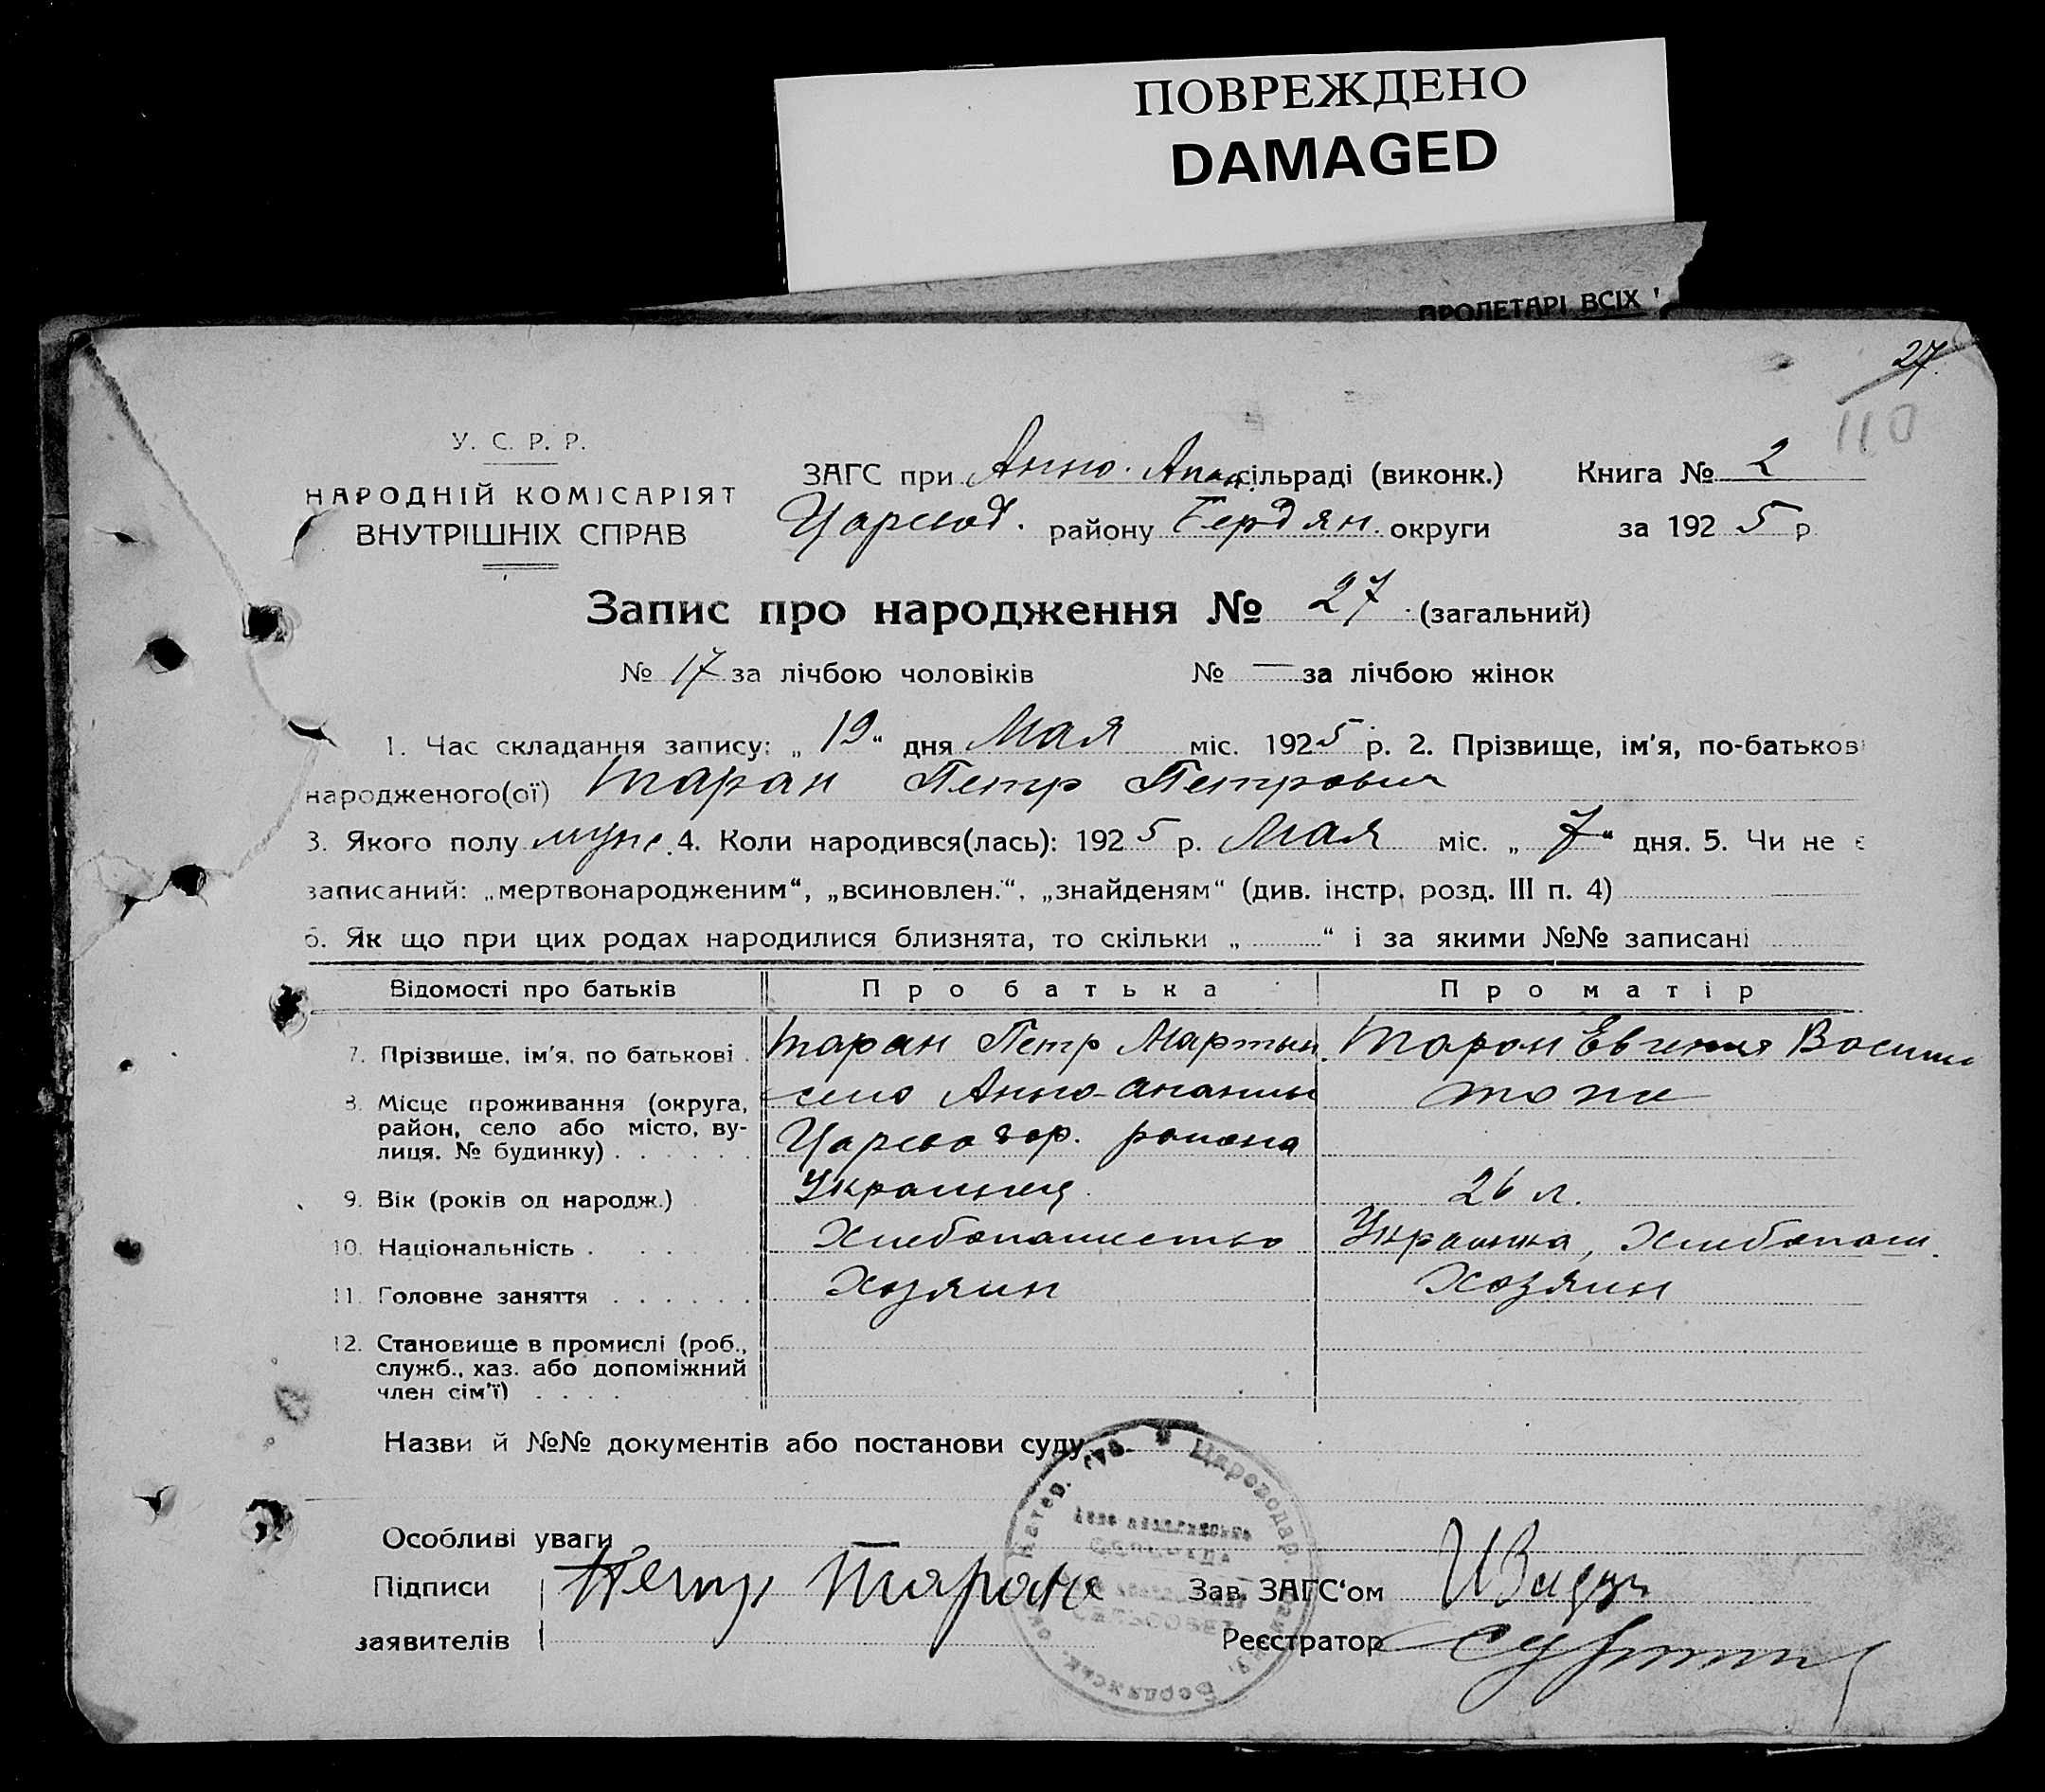 ПОВРЕЖДЕНО
DAMAGED
ПРОЛЕТАРІ ВСІХ
27
110
У. С. Р. Р.
НАРОДНІЙ КОМІСАРІЯТ
ВНУТРІШНІХ СПРАВ
ЗАГС при Анно-Анан. сільраді (виконк.) Книга № 2
Царевод. району Бердян. округи за 1925 р
Запис про народження № 27 (загальний)
№ 17 за лічбою чоловіків № — за лічбою жінок
1. Час складання запису: „19“ дня Мая міс. 1925 р. 2. Прізвище, ім'я, по-батькові
народженого(ої) Таран Петр Петрович
3. Якого полу муж. 4. Коли народився(лась): 1925 р. Мая міс. „7“ дня. 5. Чи не є
записаний: „мертвонародженим“, „всиновлен.“, „знайденям“ (див. інстр. розд. III п. 4)
6. Як що при цих родах народилися близнята, то скільки „ “ і за якими №№ записані
Відомості про батьків Про батька Про матір
7. Прізвище, ім'я, по батькові Таран Петр Мартын. Таран Евгения Васил
8. Місце проживання (округа, район, село або місто, вулиця, № будинку) село Анно-Ананьи тоже
Царевовод. района
9. Вік (років од народж.) Украинец 26 л.
10. Національність Хлебопашество Украинка, Хлебопаш.
11. Головне заняття Хозяин Хозяин
12. Становище в промислі (роб.,
служб., хаз. або допоміжний
член сім'ї)
Назви й №№ документів або постанови суду
Особливі уваги
Підписи Петр Таран Зав. ЗАГС'ом
заявителів Реєстратор
Катер. губ. Цареводар. Бердянськ.